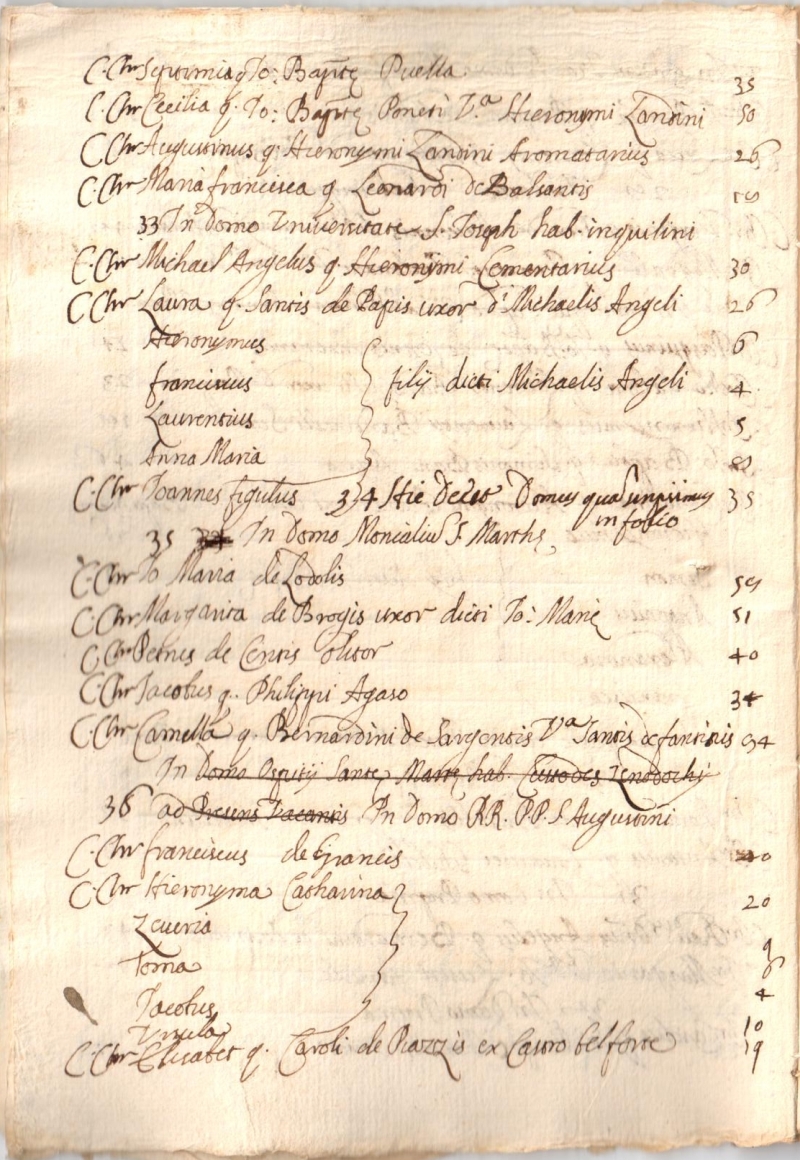 C. Chr Septimia q. Jo: Baptę Puella 35
C. Chr Cecilia q. Jo: Baptę Poneti V.a Hieronymi Zandini 50
C Chr Augustinus q. Hieronymi Zandini Aromatarius 26
C. Chr Maria francisca q. Leonardi de Balsantis
33 In Domo Universitatis S. Joseph hab. inquilini
C. Chr Michael Angelus q. Hieronymi Cementarius 30
C Chr Laura q. Santis de Papis uxor d.i Michaelis Angeli 26
Hieronymus 6
franciscus } filij dicti Michaelis Angeli 4
Laurentius 5
Anna Maria
C. Chr Joannes figulus 34 Hic Deest Domus 35
in folio
35 In Domo Monialiu S. Marthę
C. Chr Jo Maria de Lodolis 59
C. Chr Margarita de Brogis uxor dicti Jo: Marię 51
C. Chr Petrus de Centis olitor 40
C. Chr Jacobus q. Philippi Agaso 34
C. Chr Camilla q. Bernardini de Sargentis V.a Santis de fantinis 34
In Domo Ospitij Santę Martę hab. Custodes Zenodochij
36 ad Presens Vacantis In Domo RR. P.P. S. Augustini
C. Chr franciscus de Grancis 40
C. Chr Hieronyma Catharina 20
Zeueria 9
Toma 6
Jacobus 4
Ursula 10
C. Chr Elisabet q. Caroli de Piazzis ex Castro belforte 19